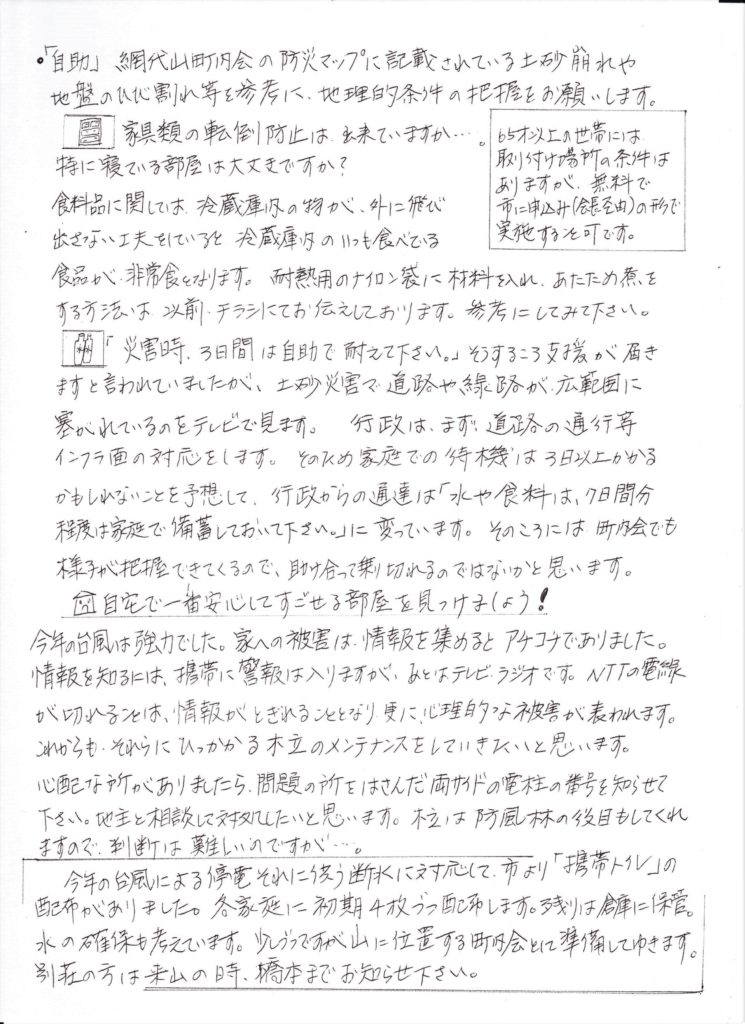 ・「自助」 網代山町内会の防災マップに記載されている土砂崩れや
地盤のひび割れ等を参考に、地理的条件の把握をお願いします。
家具類の転倒防止は、出来ていますか…。
特に寝ている部屋は大丈夫ですか?
65才以上の世帯には
取り付け場所の条件は
ありますが、無料で
市に申込み(会長経由)の形で
実施すること可です。
食料品に関しては、冷蔵庫内の物が、外に飛び
出さない工夫をしていると 冷蔵庫内のいつも食べている
食品が、非常食となります。 耐熱用のナイロン袋に材料を入れ、あたため煮を
する方法は、以前、チラシにてお伝えしております。参考にしてみて下さい。
「災害時、3日間は自助で耐えて下さい。」そうするころ支援が届き
ますと言われていましたが、土砂災害で道路や線路が、広範囲に
塞がれているのをテレビで見ます。 行政は、まず、道路の通行等
インフラ面の対応をします。 そのため家庭での待機は3日以上かかる
かもしれないことを予想して、行政からの通達は「水や食料は、7日間分
程度は家庭で備蓄しておいて下さい。」に変っています。そのころには町内会でも
様子が把握できてくるので、助け合って乗り切れるのではないかと思います。
自宅で一番安心してすごせる部屋を見つけましょう!
今年の台風は強力でした。家への被害は、情報を集めるとアチコチでありました。
情報を知るには、携帯に警報は入りますが、あとはテレビ・ラジオです。NTTの電線
が切れることは、情報がとぎれることとなり、更に、心理的な被害が表われます。
これからも、それらにひっかかる木立のメンテナンスをしていきたいと思います。
心配な所がありましたら、問題の所をはさんだ両サイドの電柱の番号を知らせて
下さい。地主と相談して対処したいと思います。木立は防風林の役目もしてくれ
ますので、判断は難しいのですが…。
今年の台風による停電それに伴う断水に対応して、市より「携帯トイレ」の
配布がありました。各家庭に初期4枚づつ配布します。残りは倉庫に保管。
水の確保も考えています。少しづつですが山に位置する町内会として準備してゆきます。
別荘の方は来山の時、橋本までお知らせ下さい。